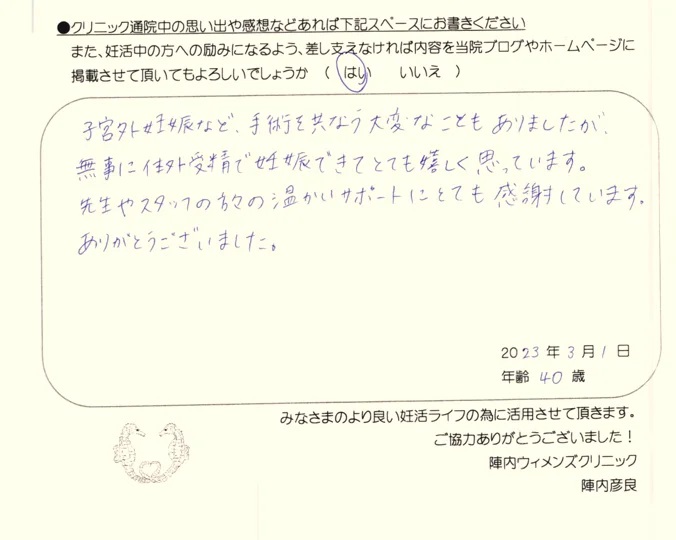 ●クリニック通院中の思い出や感想などあれば下記スペースにお書きください
また、妊活中の方への励みになるよう、差し支えなければ内容を当院ブログやホームページに
掲載させて頂いてもよろしいでしょうか （ はい いいえ ）
子宮外妊娠など、手術を共なう大変なこともありましたが、
無事に体外受精で妊娠できてとても嬉しく思っています。
先生やスタッフの方々の温かいサポートにとても感謝しています。
ありがとうございました。
2023年3月1日
年齢 40 歳
みなさまのより良い妊活ライフの為に活用させて頂きます。
ご協力ありがとうございました！
陣内ウィメンズクリニック
陣内彦良